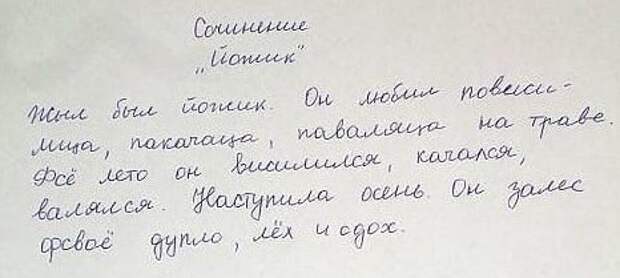 Сочинение
„Йожик"
Жыл был йожик. Он любил повиси-
лица, пакачаца, паваляца на траве.
Фсё лето он висилился, качался,
валялся. Наступила осень. Он залес
фсваё дупло, лёх и сдох.